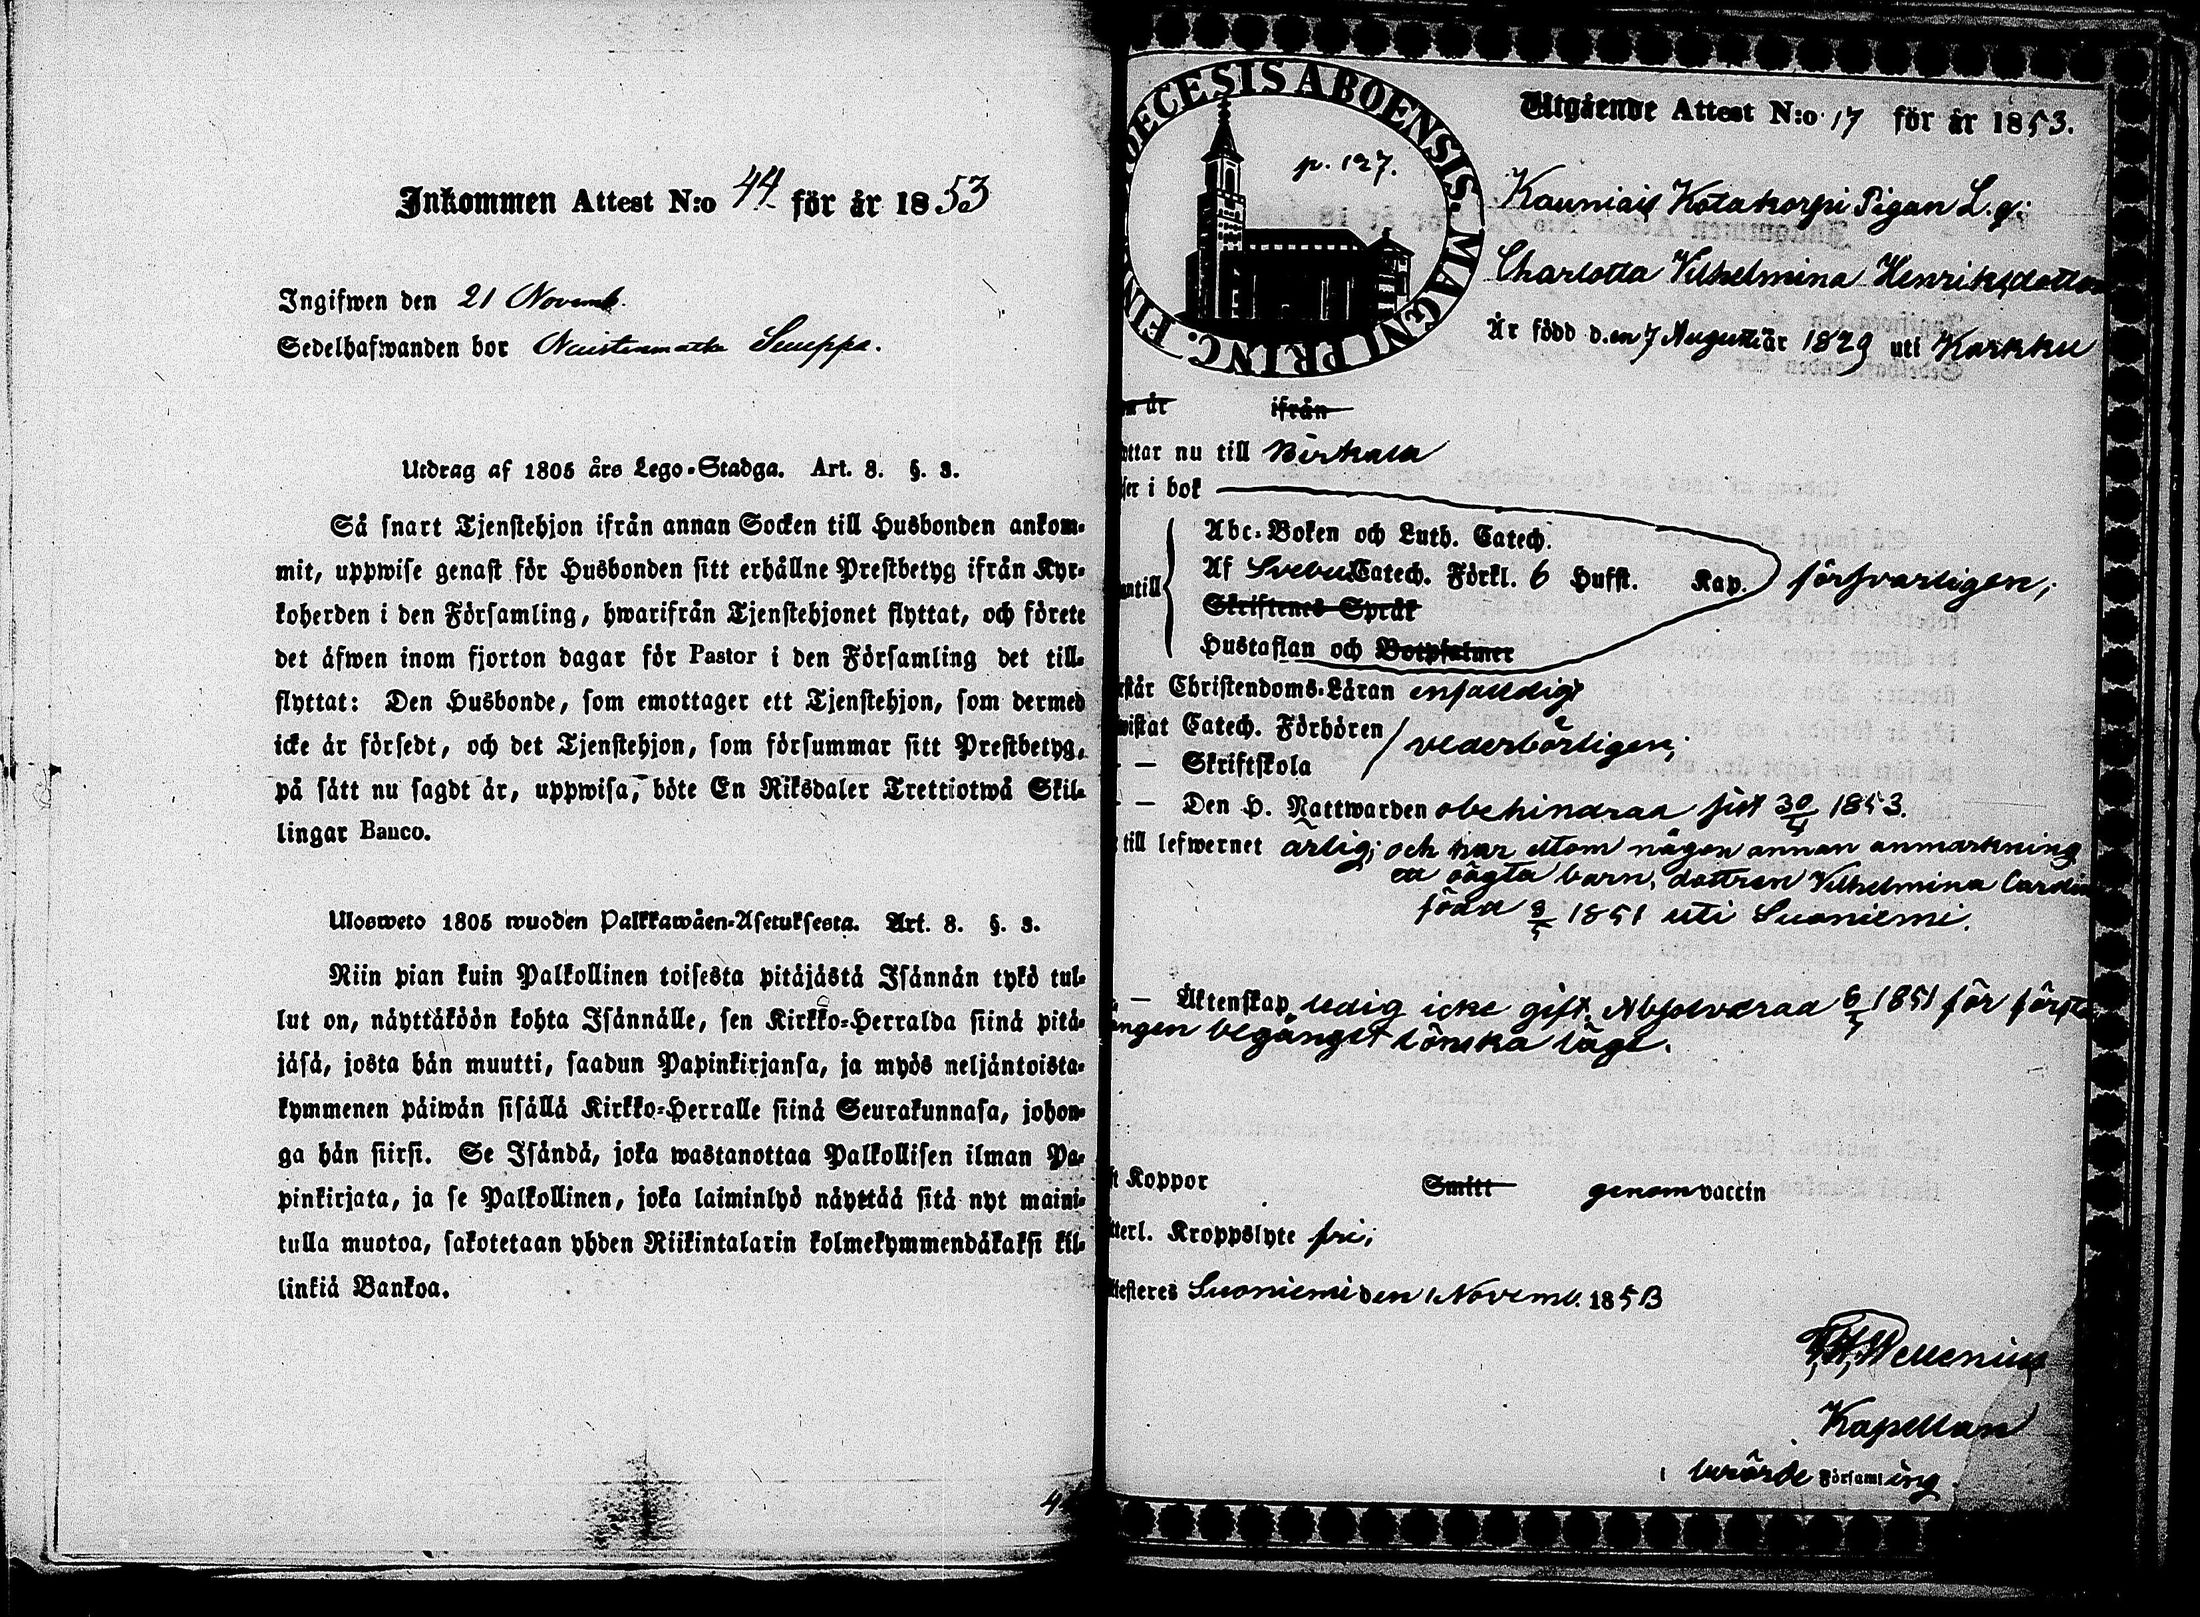 Inkommen Attest N:o 44 för år 1853
Ingifwen den 21 Novemb.
Sedelhafwanden bor Naistenmatka Suuppa.
Utdrag af 1805 års Lego-Stadga. Art. 8. §. 3.
Så snart Tjenstehjon ifrån annan Socken till Husbonden ankom-
mit, uppwise genast för Husbonden sitt erhållne Prestbetyg ifrån Kyr-
koherden i den Församling, hwarifrån Tjenstehjonet flyttat, och förete
det äfwen inom fjorton dagar för Pastor i den Församling det till-
flyttat: Den Husbonde, som emottager ett Tjenstehjon, som dermed
icke är försedt, och det Tjenstehjon, som försummar sitt Prestbetyg,
på sätt nu sagdt är, uppwisa, böte En Riksdaler Trettiotwå Skil-
lingar Banco.
Ulosweto 1805 wuoden Palkkawäen-Asetuksesta. Art. 8. §. 3.
Niin pian kuin Palkollinen toisesta pitäjästä Isännän tykö tul-
lut on, näyttäköön kohta Isännälle, sen Kirkko-Herralda siinä pitä-
jäsä, josta hän muutti, saadun Papinkirjansa, ja myös neljäntoista-
kymmenen päiwän sisällä Kirkko-Herralle siinä Seurakunnasa, johon-
ga hän siirsi. Se Isändä, joka wastanottaa Palkollisen ilman Pa-
pinkirjata, ja se Palkollinen, joka laiminlyö näyttää sitä nyt maini-
tulla muotoa, sakotetaan yhden Riikintalarin kolmekymmendäkaksi kil-
linkiä Bankoa.
DECESIS ABOENSIS. MAGNI PRINC. FIN
p. 127.
Utgående Attest N:o 17 för år 1853.
Kauniais Kotakorpi Pigan L. q:
Charlotta Vilhelmina Henriksdotter
Är född d.en 7 Augusti år 1829 uti Karkku
år ifrån
ttar nu till Birkala
ser i bok
Abc-Boken och Luth. Catech.
antill Af Svebel. Catech. Förkl. 6 Hufst. Kap. försvarligen;
Skriftenes Språk
Hustaflan och Botpsalmer
rstår Christendoms-Läran enfaldigt
wistat Catech. Förhören / vederbörligen;
— Skriftskola
— Den H. Nattwarden obehindrad sist 30/4 1853.
till lefwernet ärlig; och har utom någon annan anmärkning
ett oägta barn, dottren Vilhelmina Carolin
född 3/5 1851 uti Suoniemi.
— Äktenskap ledig icke gift. Absolverad 6/7 1851 för första
ngen begånget lönska läge.
t Koppor Smitt genom vaccin
tterl. Kroppslyte fri;
ttesteres Suoniemi den 1 Novemb. 1853
Kapellan
i berörde Församling.